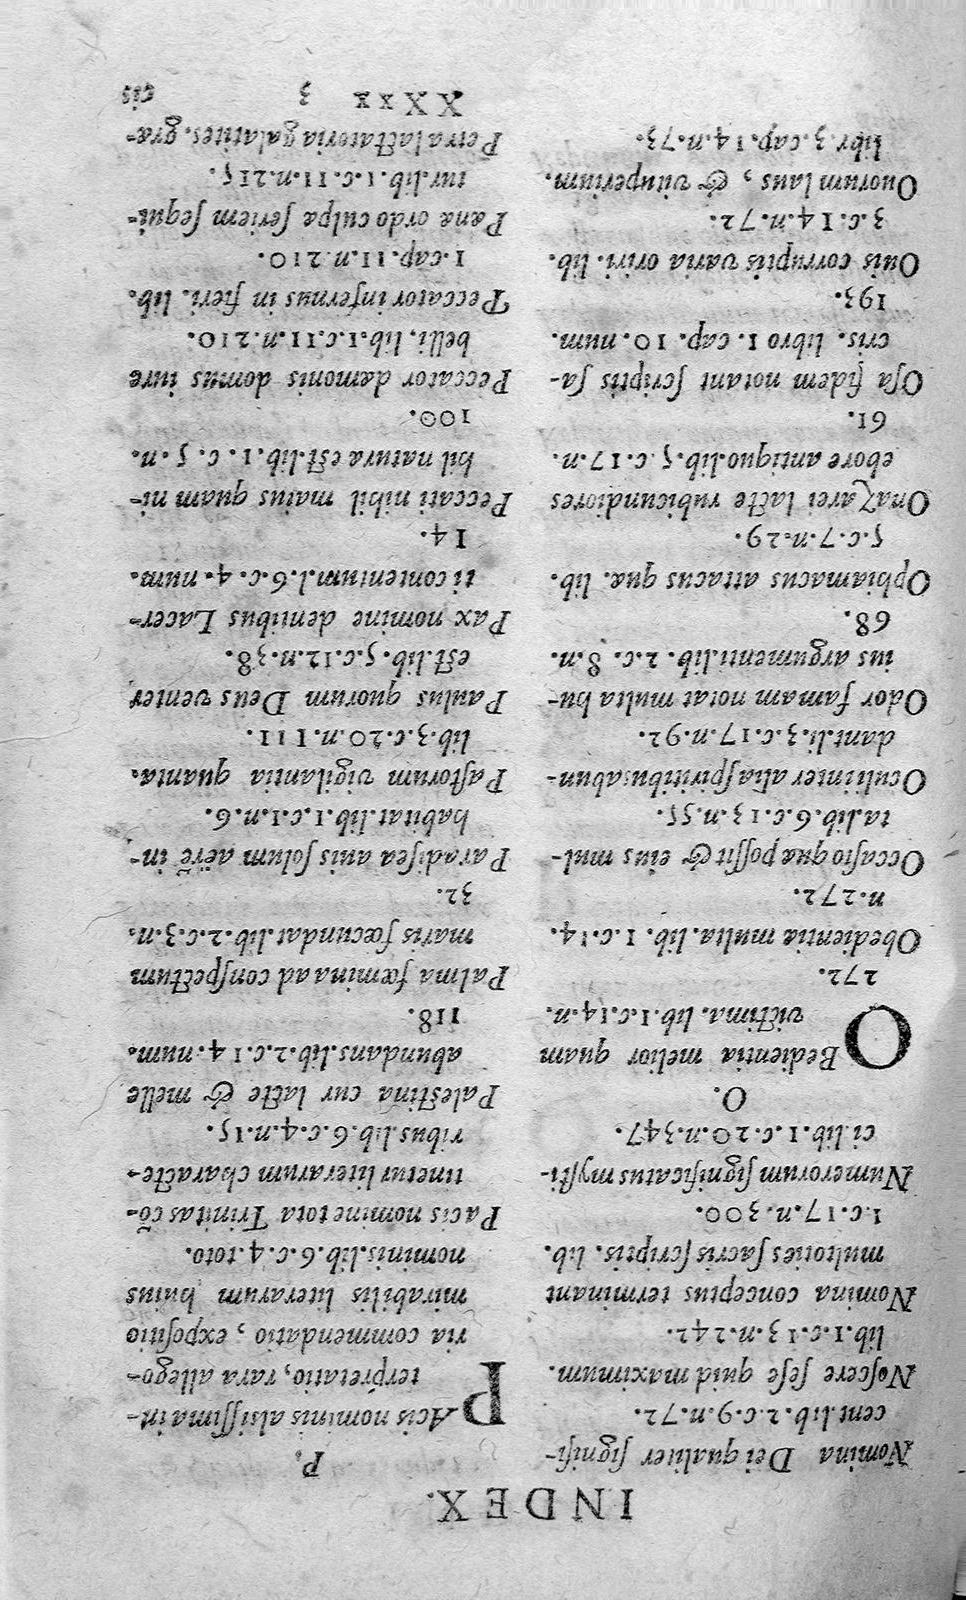 INDEX.
Nomina Dei qualiter ſignifi-
cent.lib.2.c.9.n.72.
Noſcere ſeſe quid maximum.
lib.1.c.13.n.242.
Nomina conceptus terminant
multoties ſacris ſcriptis. lib.
1.c.17.n.300.
Numerorum ſignificatus myſti-
ci.lib.1.c.20.n.347.
O.
OBedientia melior quam
victima. lib.1.c.14.n.
272.
Obedientiæ multa.lib. 1.c.14.
n.272.
Occaſio quæ poſſit & eius mul-
ta.lib.6.c.13.n.55.
Oculi inter alia ſpiritibus abun-
dant.li.3.c.17.n.92.
Odor famam notat multa hu-
ius argumenti.lib. 2.c. 8.n.
68.
Ophiamacus attacus quæ. lib.
5.c.7.n.29.
Onaz arei lacte rubicundiores
ebore antiquo.lib.5.c.17.n.
61.
Oſa fidem notant ſcriptis ſa-
cris. libro 1. cap. 10. num.
193.
Ouis corruptis varia oriri. lib.
3.c.14.n.72.
Ouorum laus, & vituperium.
libr.3.cap.14.n.73.
P.
PAcis nominis altiſſima in-
terpretatio, rara allego-
ria commendatio, expoſitio
mirabilis literarum huius
nominis.lib.6.c.4.toto.
Pacis nomine tota Trinitas cō-
tinetur literarum characte-
ribus.lib.6.c.4.n.15.
Paleſtina cur lacte & melle
abundans.lib.2.c.14.num.
118.
Palma fœmina ad conſpectum
maris fœcundat.lib.2.c.3.n.
32.
Paradiſea auis ſolum aërē in-
habitat.lib.1.c.1.n.6.
Paſtorum vigilantia quanta.
lib.3.c.20.n.111.
Paulus quorum Deus venter
eſt.lib.5.c.12.n.38.
Pax nomine dentibus Lacer-
ti contentum.l.6.c.4.num.
14.
Peccati nihil maius quam ni-
hil natura eſt.lib.1. c. 5. n.
100.
Peccator dæmonis domus iure
belli. lib.1.c.11.n.210.
Peccator infernus in fieri. lib.
1.cap.11.n.210.
Pœna ordo culpa ſeriem ſequi-
tur.lib.1.c.11.n.215.
Petra lactatoria galatites. græ-
XXxx 3 cis